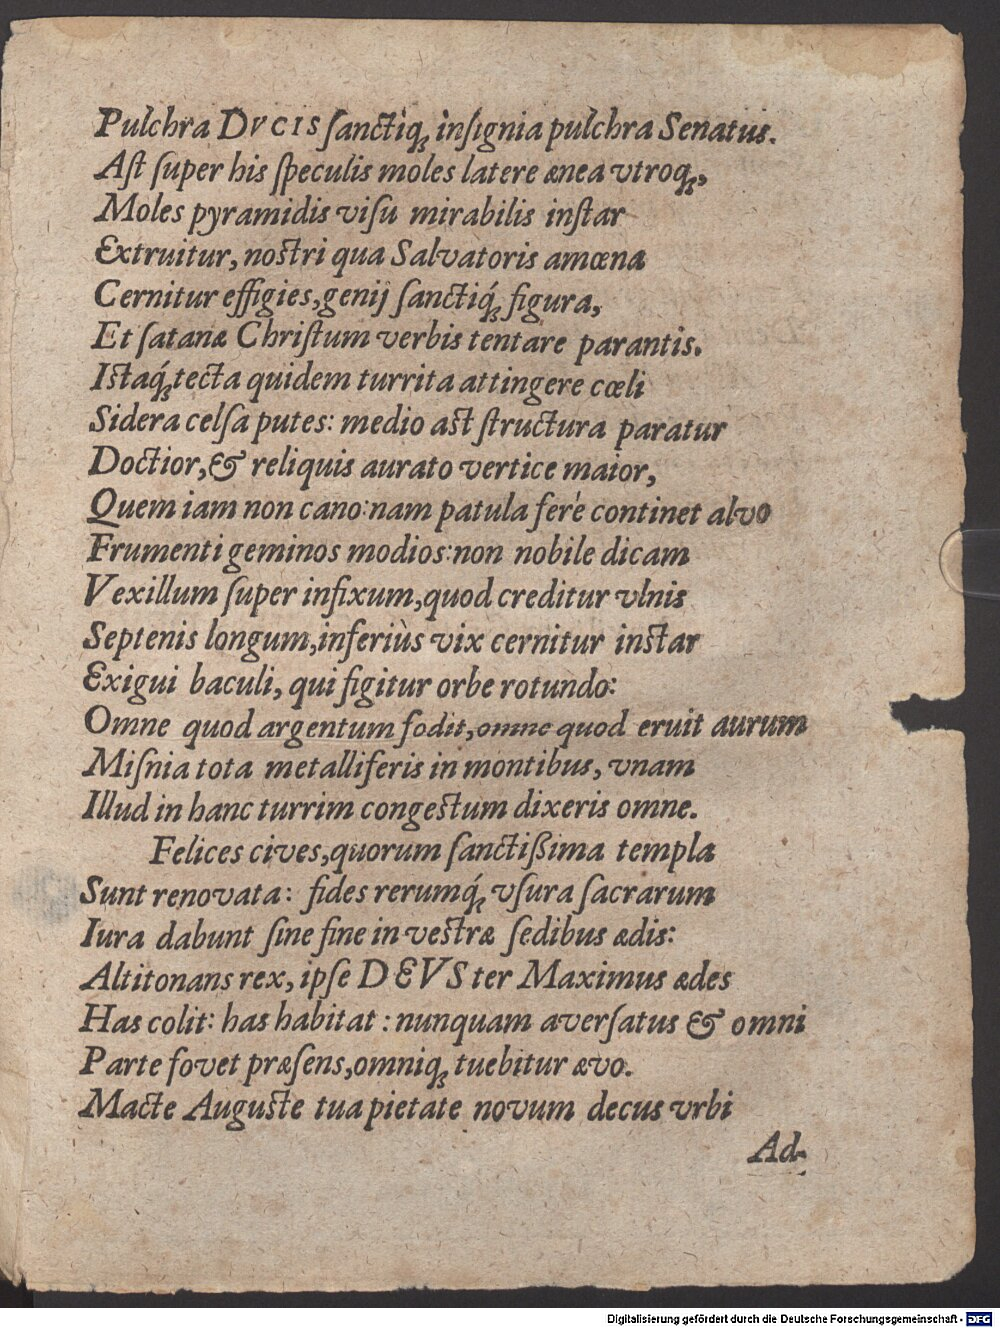 Pulchra DVCIS ſanctiq́ꝫ inſignia pulchra Senatus.
Aſt ſuper his ſpeculis moles latere ænea vtroqꝫ,
Moles pyramidis viſu mirabilis inſtar
Extruitur, noſtri qua Salvatoris amœna
Cernitur effigies, genij ſanctiq́ꝫ figura,
Et ſatanæ Chriſtum verbis tentare parantis.
Iſtaq́ꝫ tecta quidem turrita attingere cœli
Sidera celſa putes: medio aſt ſtructura paratur
Doctior, & reliquis aurato vertice maior,
Quem iam non cano: nam patula ferè continet alvo
Frumenti geminos modios: non nobile dicam
Vexillum ſuper infixum, quod creditur vlnis
Septenis longum, inferiùs vix cernitur inſtar
Exigui baculi, qui figitur orbe rotundo:
Omne quod argentum fodit, omne quod eruit aurum
Miſnia tota metalliferis in montibus, vnam
Illud in hanc turrim congeſtum dixeris omne.
Felices cives, quorum ſanctißima templa
Sunt renovata: fides rerumq́ꝫ vſura ſacrarum
Iura dabunt ſine fine in veſtræ ſedibus ædis:
Altitonans rex, ipſe DEVS ter Maximus ædes
Has colit: has habitat: nunquam averſatus & omni
Parte fovet præſens, omniqꝫ tuebitur ævo.
Macte Auguſte tua pietate novum decus vrbi
Ad-
Digitalisierung gefördert durch die Deutsche Forschungsgemeinschaft - DFG